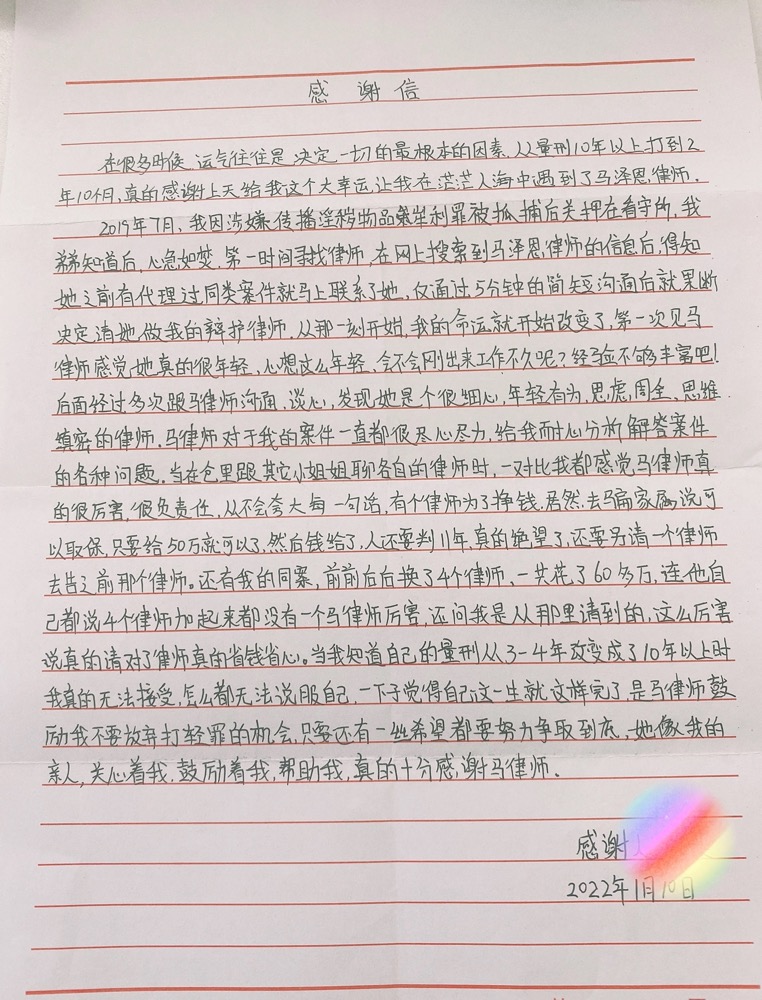 感 谢 信
在很多时候,运气往往是决定一切的最根本的因素,从量刑10年以上打到2
年10个月,真的感谢上天给我这个大幸运,让我在茫茫人海中遇到了马泽恩律师.
2019年7月,我因涉嫌传播淫秽物品牟利罪被抓捕后关押在看守所,我
弟弟知道后,心急如焚,第一时间寻找律师,在网上搜索到马泽恩律师的信息后,得知
她之前有代理过同类案件就马上联系了她,仅通过5分钟的简短沟通后就果断
决定请她做我的辩护律师.从那一刻开始,我的命运就开始改变了,第一次见马
律师感觉她真的很年轻、心想这么年轻、会不会刚出来工作不久呢?经验不够丰富吧!
后面经过多次跟马律师沟通、谈心,发现她是个很细心,年轻有为,思虑周全、思维
缜密的律师.马律师对于我的案件一直都很尽心尽力,给我耐心分析解答案件
的各种问题.当在仓里跟其它小姐姐聊各自的律师时,一对比我都感觉马律师真
的很厉害,很负责任,从不会夸大每一句话,有个律师为了挣钱,居然去骗家属说可
以取保,只要给50万就可以了,然后钱给了,人还要判11年,真的绝望了,还要另请一个律师
去告之前那个律师。还有我的同案,前前后后换了4个律师、一共花了60多万,连他自
己都说4个律师加起来都没有一个马律师厉害,还问我是从那里请到的,这么厉害
说真的请对了律师真的省钱省心。当我知道自己的量刑从3-4年改变成了10年以上时
我真的无法接受,怎么都无法说服自己,一下子觉得自己这一生就这样完了,是马律师鼓
励我不要放弃打轻罪的机会,只要还有一丝希望都要努力争取到底,她像我的
亲人,关心着我,鼓励着我,帮助我,真的十分感谢马律师.
感谢人
2022年1月10日